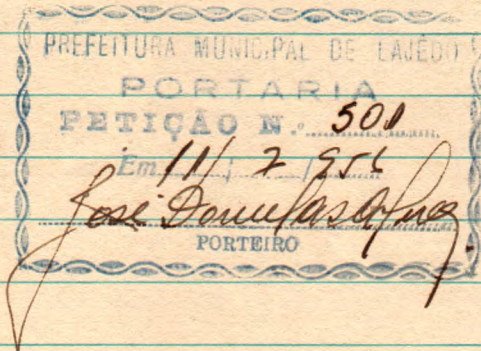 PREFEITURA MUNICIPAL DE LAJEDO
PORTARIA
PETIÇÃO N.º 500
Em 11 / 7 / 956
José
PORTEIRO